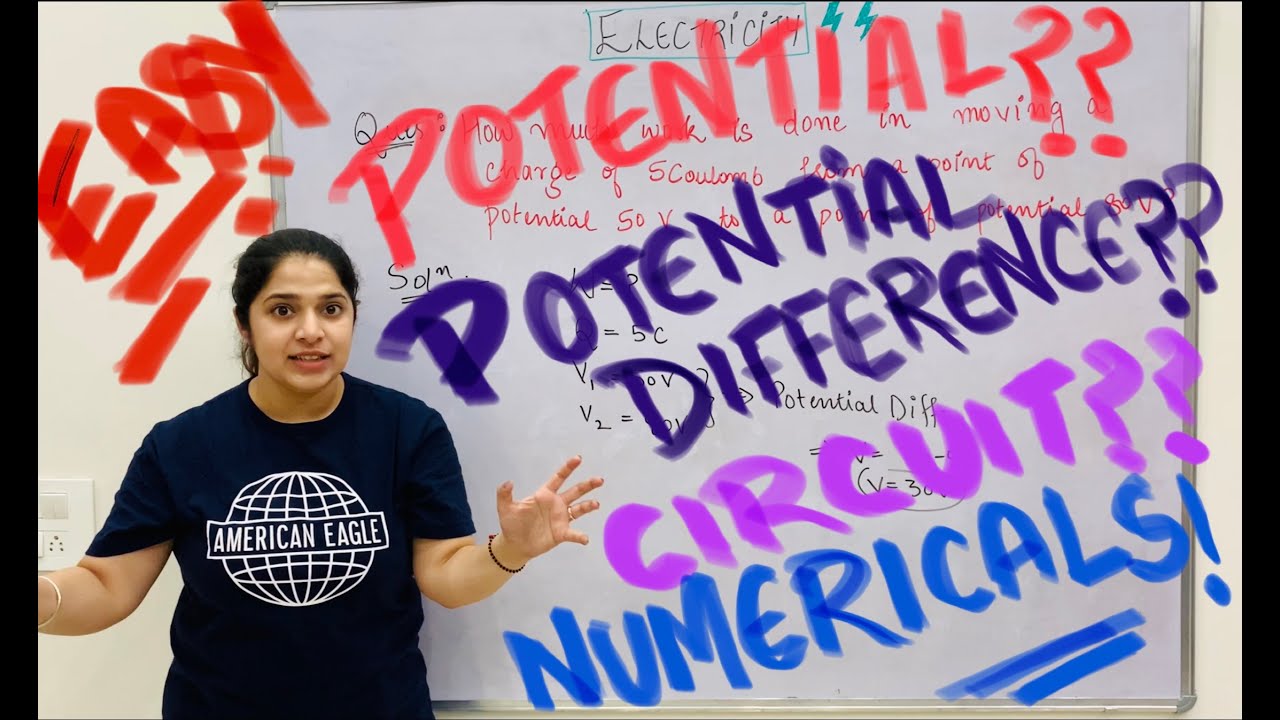 ELECTRICITY
EASY!
POTENTIAL??
Ques: How much work is done in moving a
charge of 5Coulomb from a point of
potential 50 V to a point of potential 80V?
POTENTIAL
DIFFERENCE??
Solⁿ
W = ?
Q = 5C
V₁ = 50V
V₂ = 80V
⇒ Potential Diff.
(V = 30V
CIRCUIT??
NUMERICALS!
AMERICAN EAGLE